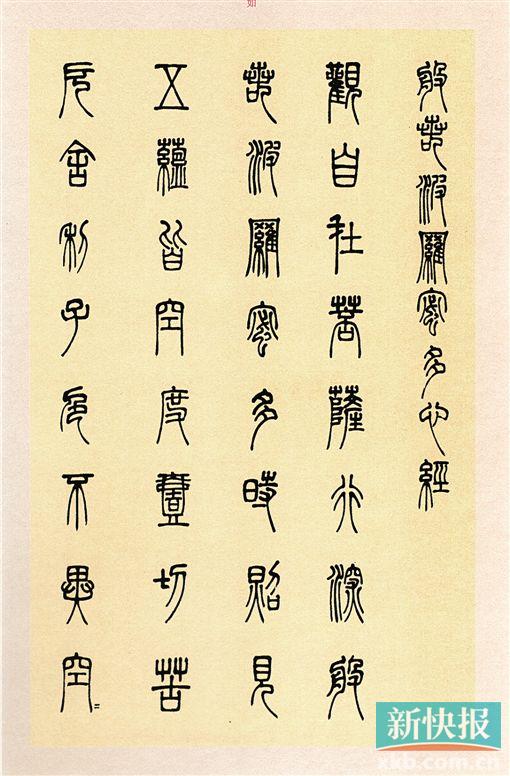 如
般若波羅蜜多心經
觀自在菩薩行深般
若波羅蜜多時照見
五蘊皆空度壹切苦
厄舍利子色不異空=
新快报
xkb.com.cn